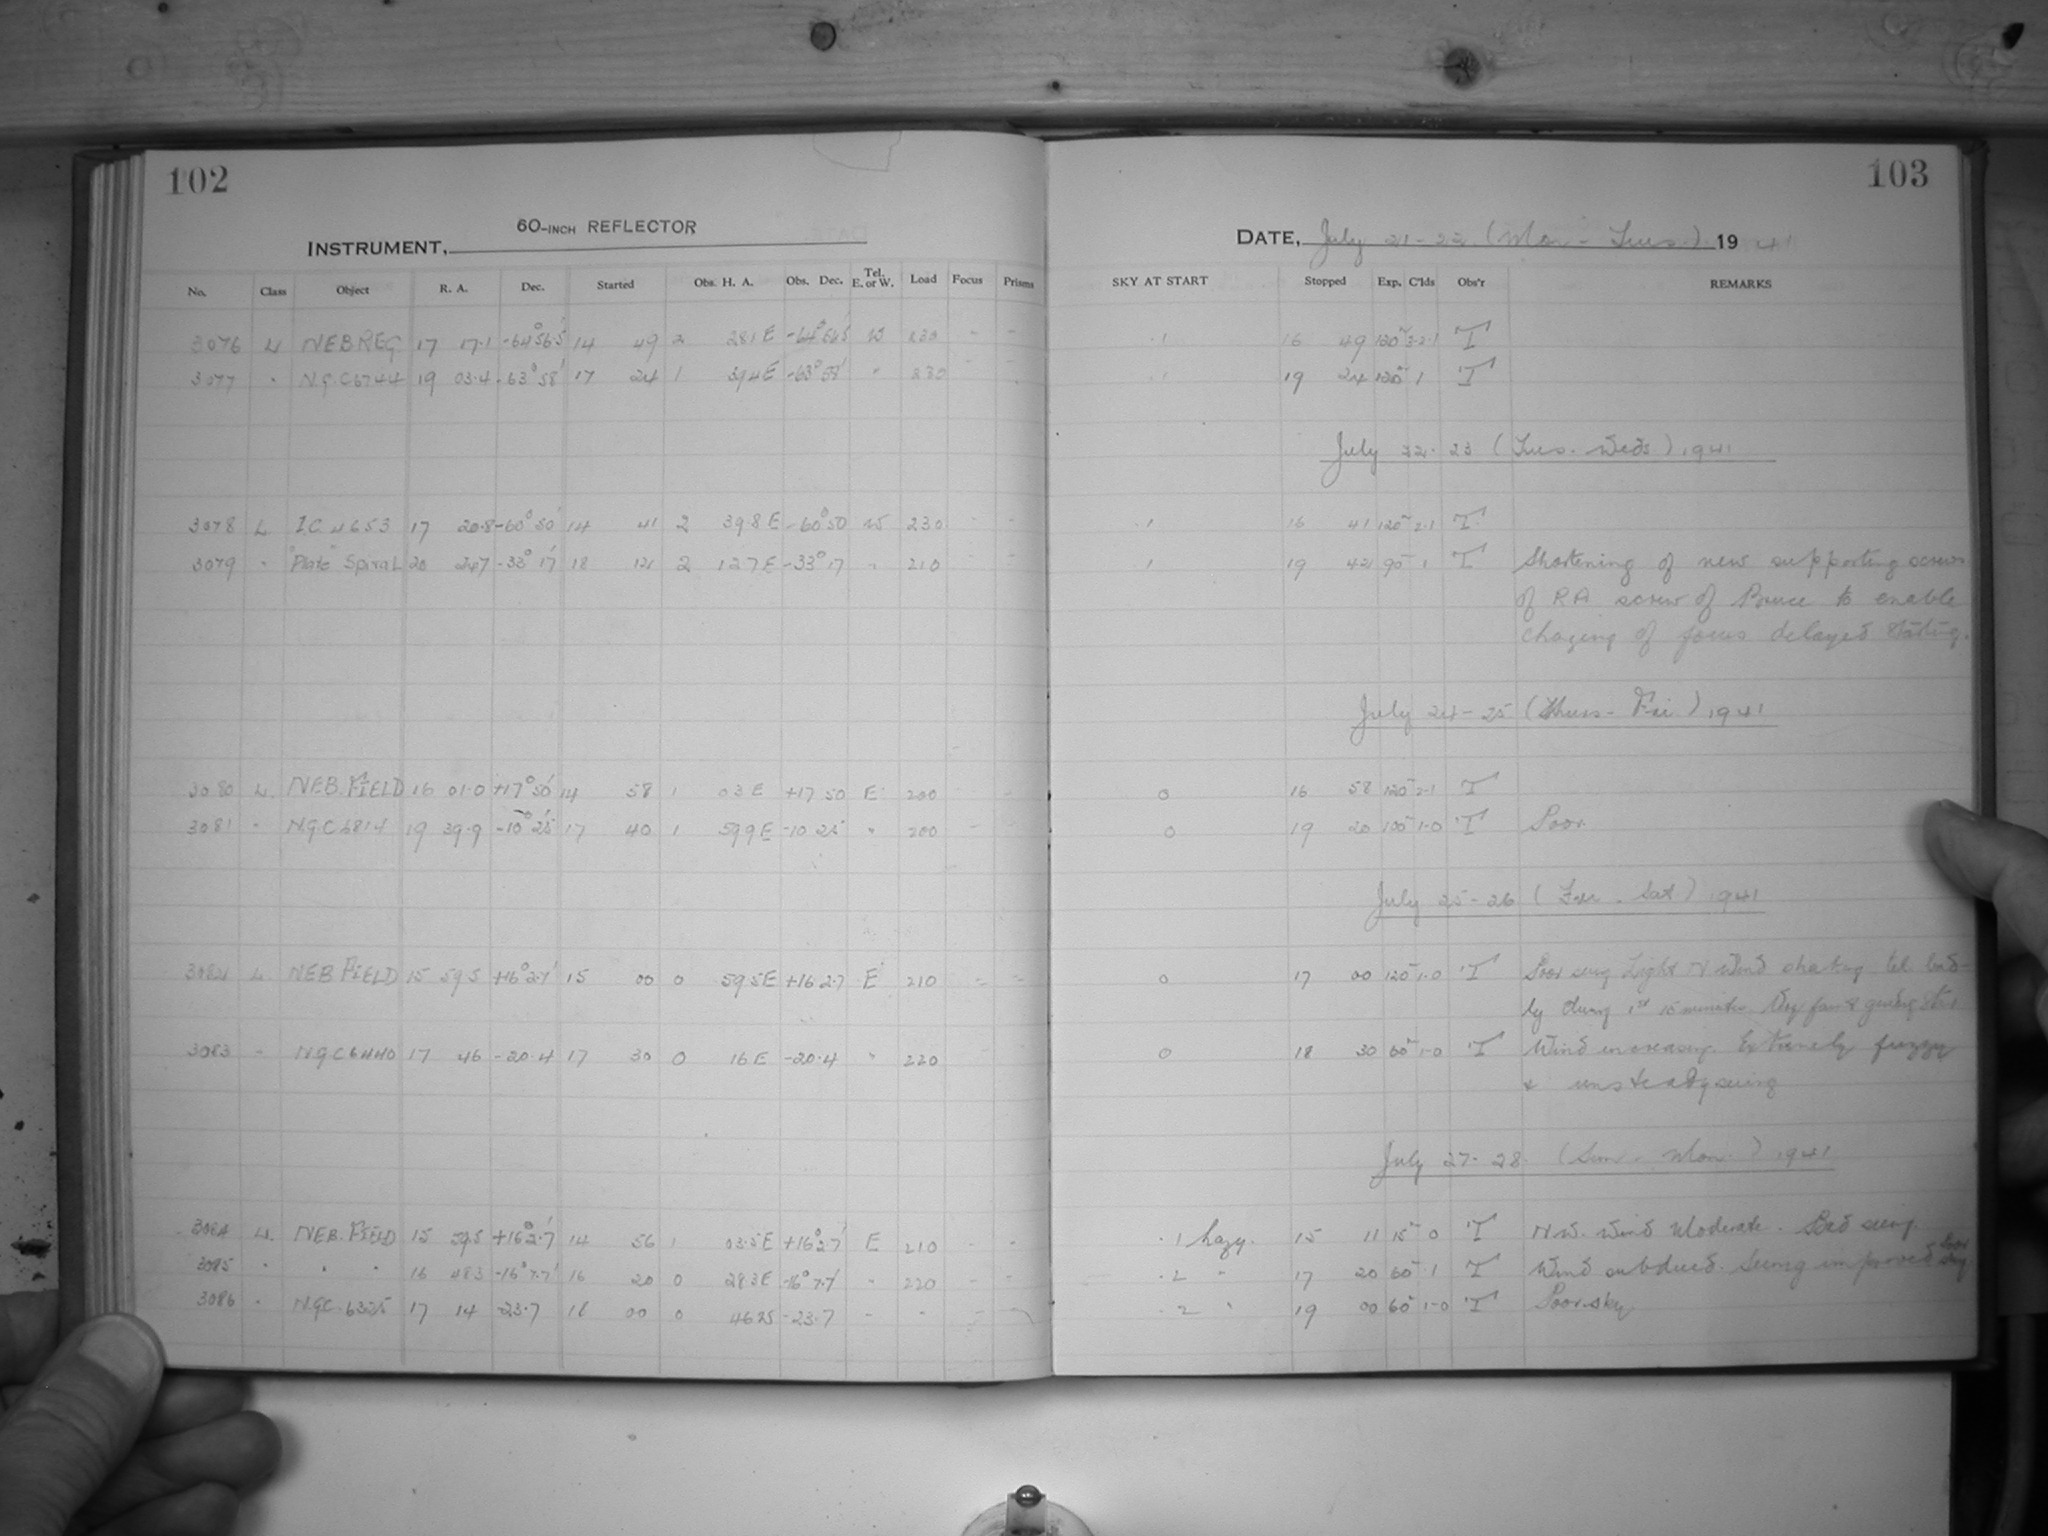 102
103
INSTRUMENT, 60-INCH REFLECTOR
DATE, July 21-22 (Mon - Tues.) 1941
No. Class Object R. A. Dec. Started Obs. H. A. Obs. Dec. Tel. E. or W. Load Focus Prisms SKY AT START Stopped Exp. C'lds Obs'r REMARKS
3076 L NEB.REG 17 17.1 -64°56.5' 14 49 2 281E W 230 - - .1 16 49 120 3-2-1 T
3077 " N.G.C 6744 19 03.4 -63°58' 17 24 1 394E -63°58' " 230 .1 19 24 120 1 T
July 22-23 (Tues. Weds) 1941
3078 L I.C. 4653 17 20.8 -60°50' 14 41 2 39.8E -60°50 W 230 - - .1 16 41 120 2-1 T
3079 " "Plate" Spiral 20 247 -33°17' 18 12 2 127E -33°17 " 210 1 19 42 90 1 T Shortening of new supporting screws
of RA screw of Bruce to enable
chaging of focus delayed starting.
July 24-25 (Thurs - Fri) 1941
3080 L NEB. FIELD 16 01.0 +17°50' 14 58 1 03E +17 50 E 200 - - 0 16 58 120 2-1 T
3081 " N.G.C 6814 19 39.9 -10°25' 17 40 1 599E -10 25 " 200 0 19 20 100 1-0 T Poor
July 25-26 (Fri - Sat) 1941
3082 L NEB FIELD 15 595 +16°2.7' 15 00 0 595E +16 2.7 E 210 - - 0 17 00 120 1-0 T Poor seeing Light N wind shaking tel. bad-
ly during 1st 15 minutes Very faint guiding star
3083 " N.G.C 6440 17 46 -20.4 17 30 0 16E -20.4 " 220 0 18 30 60 1-0 T Wind increasing. Extremely fuzzy
& unsteady seeing
July 27-28 (Sun - Mon.) 1941
3084 L NEB. FIELD 15 595 +16°2.7' 14 56 1 03.5E +16°2.7' E 210 - - .1 hazy. 15 11 15 0 T N.W. Wind Moderate. Bad seeing.
3085 " " " 16 483 -16°7.7' 16 20 0 283E -16°7.7' " 220 - - .2 " 17 20 60 .1 T Wind subdued. Seeing improved Poor sky
3086 " NGC 6325 17 14 -23.7 16 00 0 -23.7 - - .2 " 19 00 60 1-0 T Poor sky